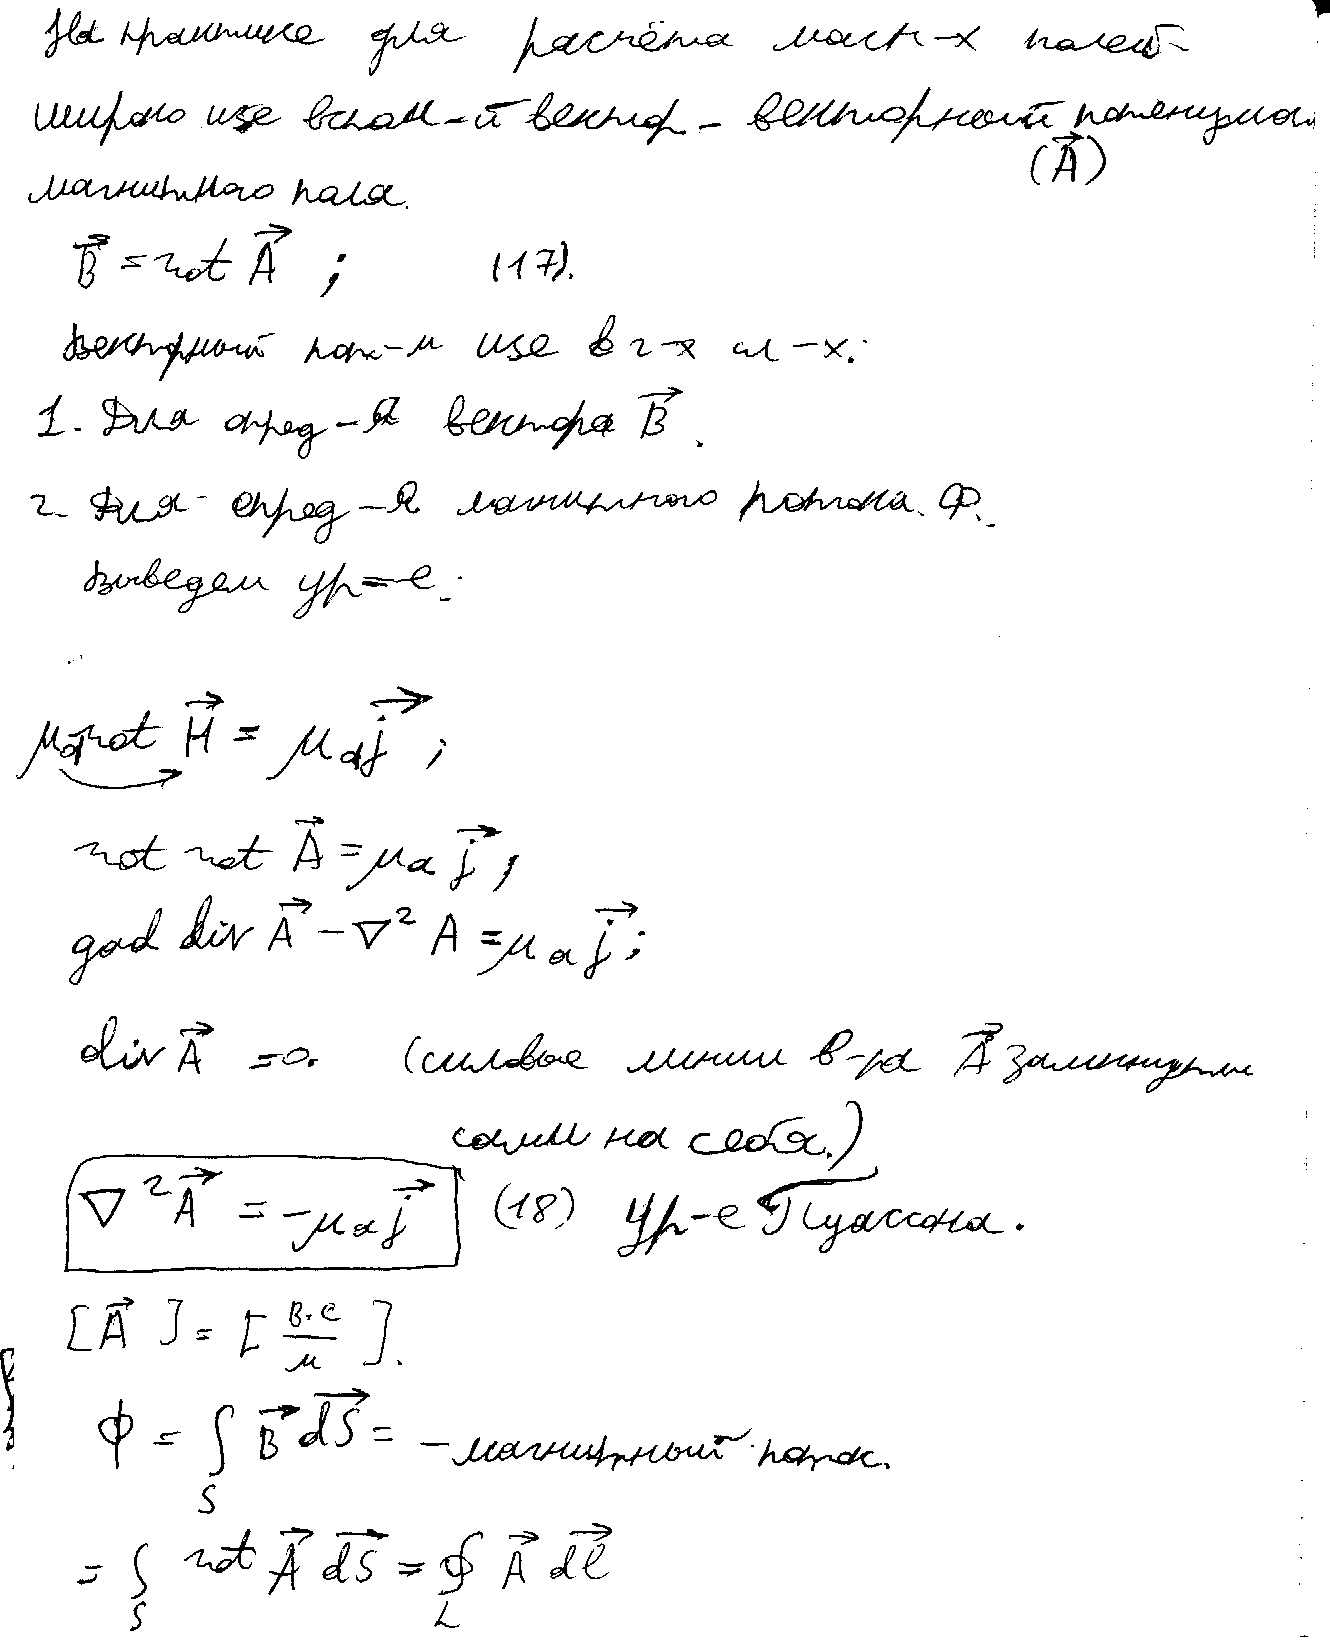 На практике для расчёта магн-х полей
широко use вспом-й вектор - векторный потенциал
(A⃗)
магнитного поля.
B⃗ = rot A⃗ ; (17).
Векторный пот-л use в г-х сл-х:
1. Для опред-я вектора B⃗.
2. Для опред-я магнитного потока Ф.
Выведем ур-е:
μa rot H⃗ = μa j⃗ ;
rot rot A⃗ = μa j⃗ ;
gad div A⃗ - ∇² A = μa j⃗ ;
div A⃗ = 0. (силовые линии в-ра A⃗ замкнуты
сами на себя.)
∇² A⃗ = -μa j⃗ (18) Ур-е Пуассона.
[A⃗] = [В·с/м].
Ф = ∫S B⃗ dS⃗ = - магнитный поток.
= ∫S rot A⃗ dS⃗ = ∮L A⃗ dl⃗